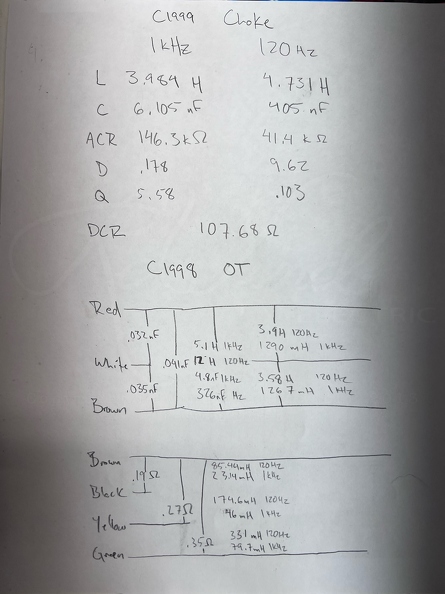 C1999 Choke
1kHz 120Hz
L 3.984 H 4.731H
C 6.105nF 405 nF
ACR 146.3kΩ 41.4 kΩ
D .178 9.62
Q 5.58 .103
DCR 107.68 Ω
C1998 OT
Red
.032nF 3.9H 120Hz
5.1H 1kHz 1290 mH 1kHz
White .041nF 12 H 120Hz
.035nF 4.8nF 1kHz 3.58H 120Hz
Brown 326nF Hz 1267mH 1kHz
Brown 85.44mH 120Hz
.19Ω 23.14mH 1kHz
Black
.27Ω 174.6mH 120Hz
Yellow 46mH 1kHz
.35Ω 331mH 120Hz
Green 79.7mH 1kHz